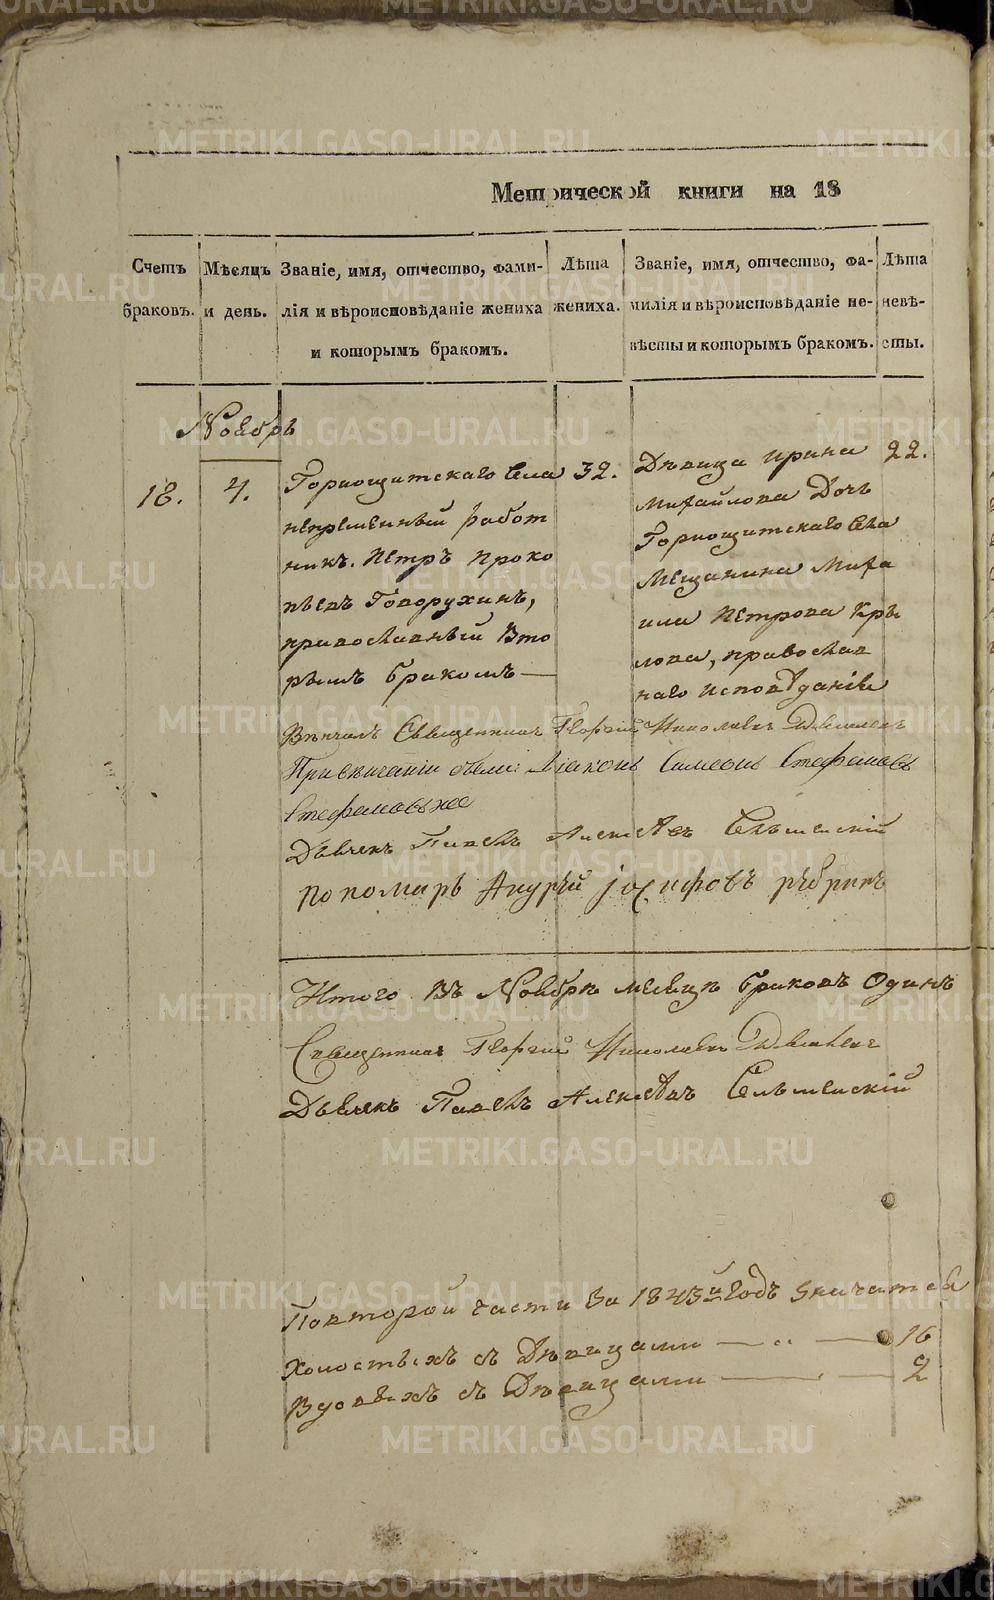 Метрической книги на 18
Счетъ браковъ.
Мѣсяцъ и день.
Званіе, имя, отчество, фами-
лія и вѣроисповѣданіе жениха
и которымъ бракомъ.
Лѣта
жениха.
Званіе, имя, отчество, фа-
милія и вѣроисповѣданіе не-
вѣсты и которымъ бракомъ.
Лѣта
невѣ-
сты.
Ноябрь
18.
4.
Горнощитскаго Села
непременный работ
никъ. Петръ Проко
пьевъ Говорухинъ,
православный Вто
рымъ бракомъ —
32.
Девица Ирина
Михайлова Дочь
Горнощитскаго Села
Мещанина Миха
ила Петрова Кры
лова, православ
наго исповѣданія
22.
Венчалъ Священникъ Георгий Николаевъ
При венчании были: Діаконъ Симеонъ Стефановъ
Стефановыхъ
Дьячекъ Павелъ Алексѣевъ Сельменскій
Пономарь Андрей Іосифовъ
Итого въ Ноябре месяце браковъ Одинъ
Священникъ Георгий Николаевъ
Дьячекъ Павелъ Алексѣевъ Сельменскій
Повторой части за 1843й годъ Значится
Холостыхъ съ Девицами — „ — 16
Вдовыхъ съ Девицами — 2
METRIKI.GASO-URAL.RU